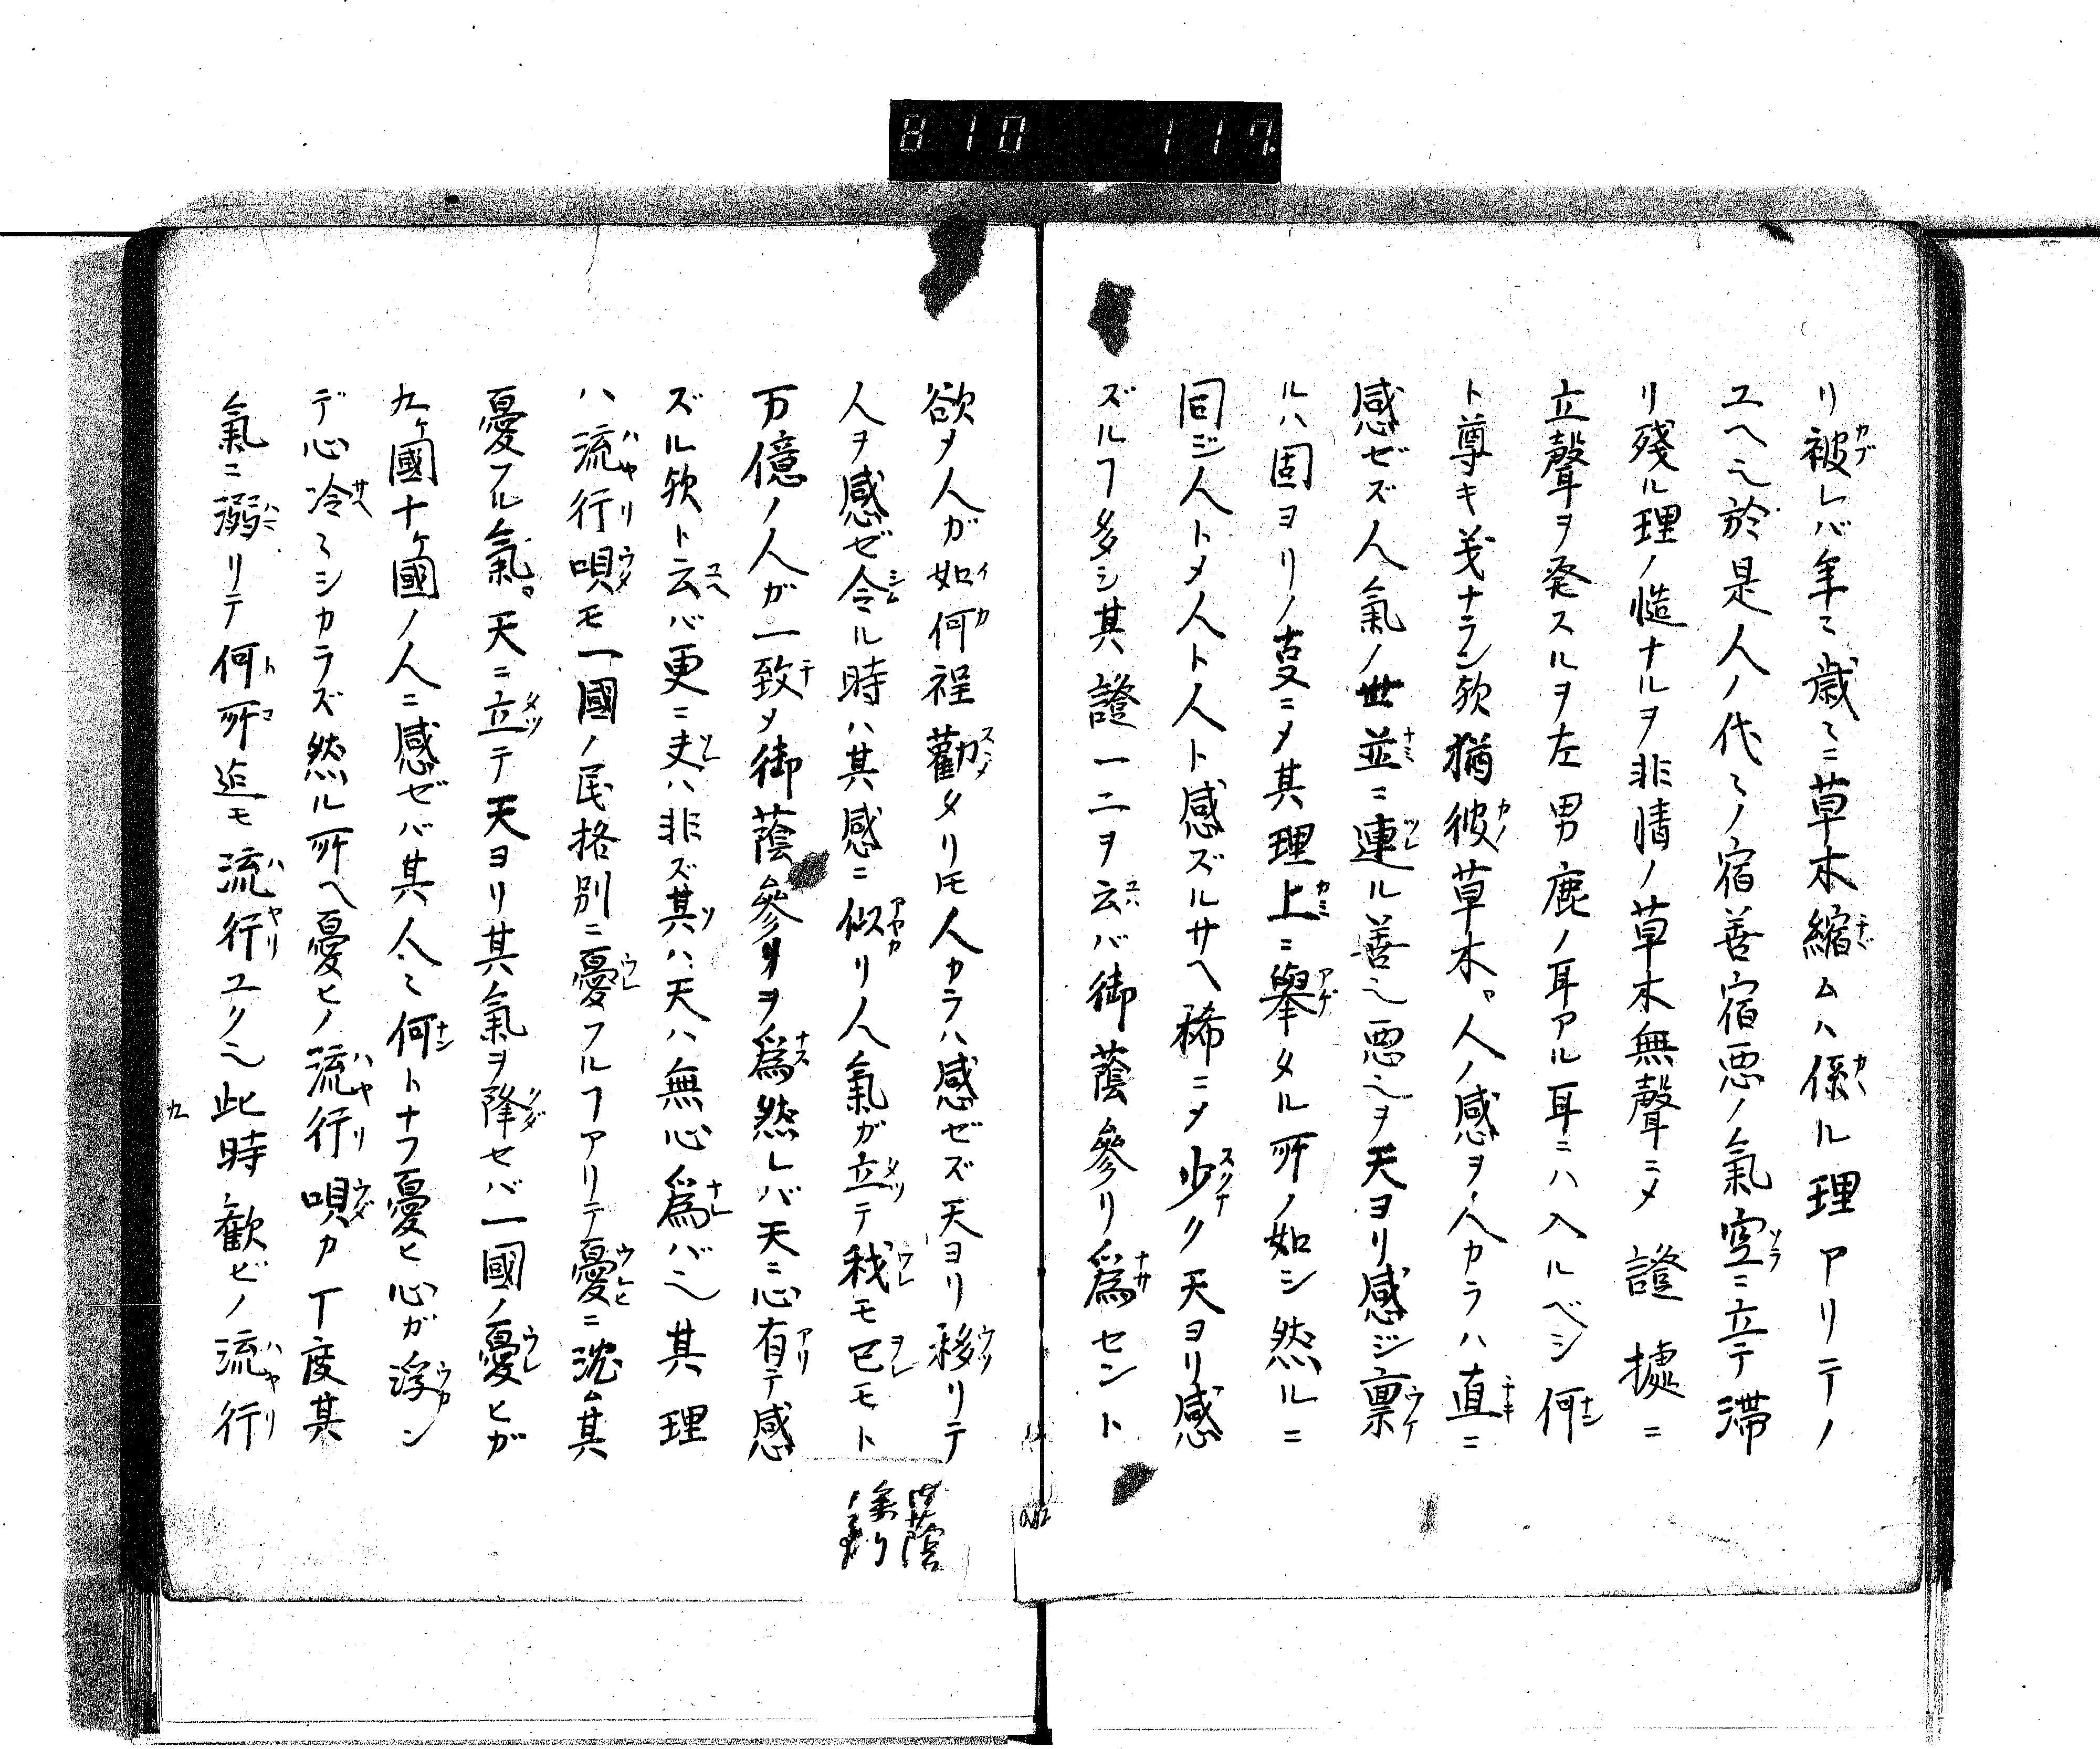 810 117.
リ被レバ年〻歳〻ニ草木縮ムハ係ル理アリテノ
ユヘ也於是人ノ代〻ノ宿善宿悪ノ氣空ニ立テ滞
リ残ル理ノ慥ナルヲ非情ノ草木無聲ニ〆證據ニ
立聲ヲ発スルヲ左男鹿ノ耳アル耳ニハ入ルベシ何
ト尊キ義ナラン欤猶彼草木ㇵ人ノ感ヲ人カラハ直ニ
感ゼズ人氣ノ世並ニ連ル善也悪也ヲ天ヨリ感ジ禀
ルハ固ヨリノ㕝ニ〆其理上ニ擧タル所ノ如シ然ルニ
同ジ人ト〆人ト人ト感ズルサヘ稀ニ〆少ク天ヨリ感
ズルヿ多シ其證一二ヲ云バ御蔭參リ為セント
欲〆人ガ如何程勸タリ𪜈人カラハ感ゼズ天ヨリ移リテ
人ヲ感ゼ令ル時ハ其感ニ似リ人氣ガ立テ我モ己モト
万億ノ人ガ一致〆御蔭參リヲ為然レバ天ニ心有テ感
ズル欤ト云バ更ニ夫ハ非ズ其ハ天ハ無心為バ也其理
ハ流行唄モ一國ノ民格別ニ憂フルヿアリテ憂ニ沈ム其
憂フル氣天ニ立テ天ヨリ其氣ヲ降セバ一國ノ憂ヒガ
九ヶ國十ヶ國ノ人ニ感ゼバ其人〻何トナフ憂ヒ心ガ浮ン
デ心冷〻シカラズ然ル所ヘ憂ヒノ流行唄カ丁度其
氣ニ溺リテ何所迄モ流行ユク也此時歓ビノ流行
御蔭
參リ
九